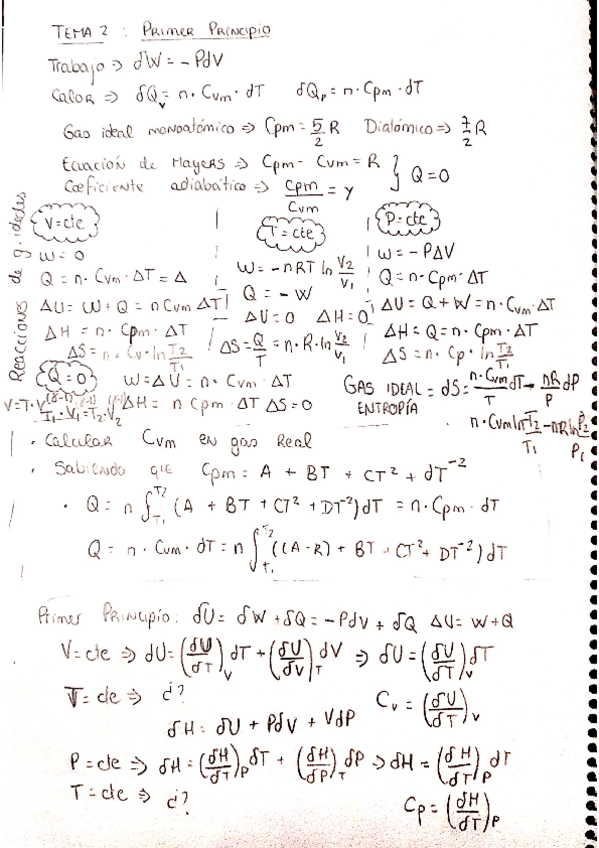 TEMA 2 : PRIMER PRINCIPIO
Trabajo => δW = - PdV
Calor => δQv = n · Cvm · dT   δQp = n · Cpm · dT
Gas ideal monoatómico => Cpm = 5/2 R   Diatómico => 7/2 R
Ecuación de Mayers => Cpm - Cvm = R } Q = 0
Coeficiente adiabático => Cpm/Cvm = γ
Reacciones de g. ideales
V = cte
W = 0
Q = n · Cvm · ΔT = Δ
ΔU = W + Q = n Cvm ΔT
ΔH = n · Cpm · ΔT
ΔS = n · Cv · ln T2/T1
T = cte
W = - nRT ln V2/V1
Q = - W
ΔU = 0   ΔH = 0
ΔS = Q/T = n · R · ln V2/V1
P = cte
W = - PΔV
Q = n · Cpm · ΔT
ΔU = Q + W = n · Cvm · ΔT
ΔH = Q = n · Cpm · ΔT
ΔS = n · Cp · ln T2/T1
Q = 0   W = ΔU = n · Cvm · ΔT
ΔH = n Cpm ΔT   ΔS = 0
GAS IDEAL = dS = n·Cvm/T dT - nR/P dP
ENTROPÍA
n · Cvm ln T2/T1 - nR ln P2/P1
· Calcular Cvm en gas Real
· Sabiendo que Cpm = A + BT + CT² + dT⁻²
· Q = n ∫T1 T2 (A + BT + CT² + DT⁻²) dT = n · Cpm · dT
Q = n · Cvm · dT = n ∫T1 T2 ((A - R) + BT + CT² + DT⁻²) dT
Primer Principio: δU = δW + δQ = - PdV + δQ   ΔU = W + Q
V = cte => dU = (δU/δT)V dT + (δU/δV)T dV => δU = (δU/δT)V δT
T = cte => ¿?   Cv = (δU/δT)V
δH = δU + PdV + VdP
P = cte => δH = (δH/δT)P δT + (δH/δP)T δP => δH = (δH/δT)P dT
T = cte => ¿?   Cp = (δH/δT)P